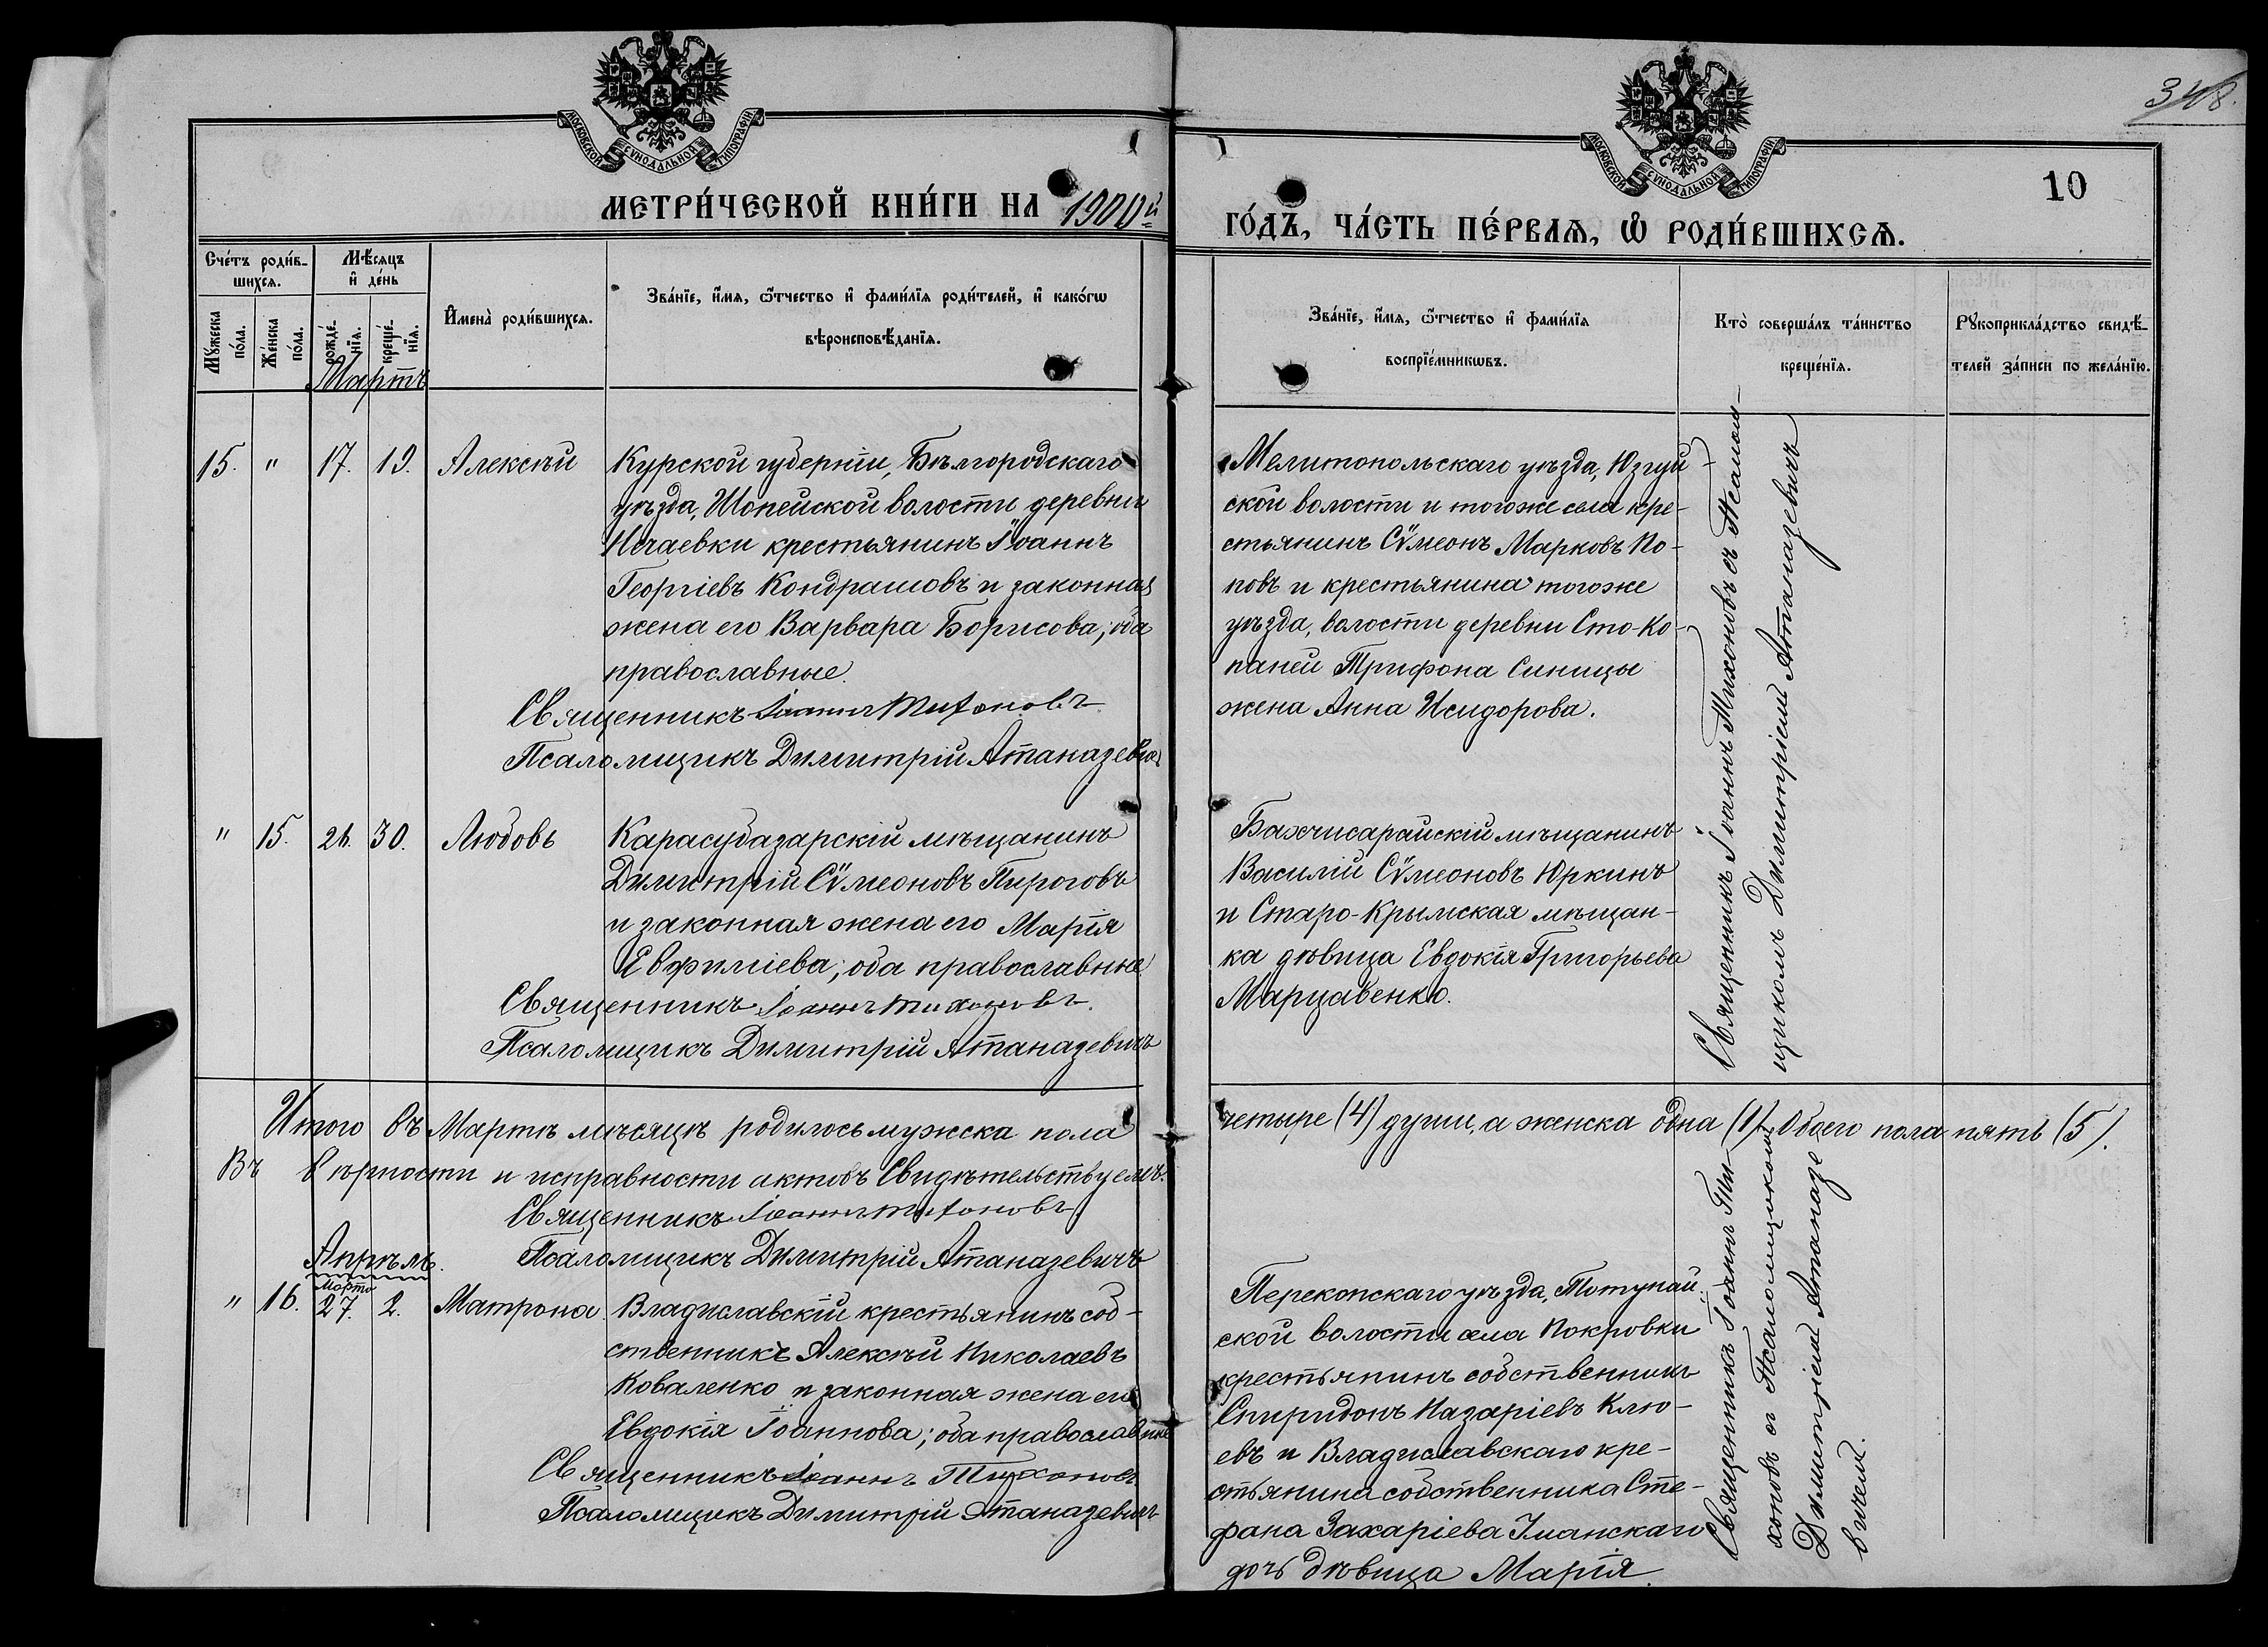 348.
10
МОСКОВСКОЙ СѴНОДАЛЬНОЙ ТИПОГРАФІИ
МОСКОВСКОЙ СѴНОДАЛЬНОЙ ТИПОГРАФІИ
МЕТРИ́ЧЕСКОЙ КНИ́ГИ НА 1900й
ГО́ДЪ, ЧА́СТЬ ПЕ́РВАѦ, Ѿ РОДИ́ВШИХСѦ.
Сче́тъ роди́в-
шихсѧ.
Мѣ́сѧцъ
и҆ де́нь
Мꙋ́жеска
по́ла.
Же́нска
по́ла.
рожде́-
нїѧ.
креще́-
нїѧ.
И҆мена̀ роди́вшихсѧ.
Зва́нїе, и҆́мѧ, ѻ҆́тчество и҆ фами́лїѧ роди́телей, и҆ како́гѡ
вѣроисповѣ́данїѧ.
Зва́нїе, и҆́мѧ, ѻ҆́тчество и҆ фами́лїѧ
воспрїе́мникѡвъ.
Кто̀ соверша́лъ та́инство
креще́нїѧ.
Рꙋкоприкла́дство свидѣ́-
телей за́писи по жела́нїю.
Мартъ
15. " 17. 19. Алексѣй
Курской губерніи, Бѣлгородскаго
уѣзда, Шопейской волости деревни
Нечаевки крестьянинъ Іоаннъ
Георгіевъ Кондрашовъ и законная
жена его Варвара Борисова; оба
православные.
Священникъ Іоаннъ Тихоновъ.
Псаломщикъ Димитрій Атаназевичъ
Мелитопольскаго уѣзда, Юзгуй-
ской волости и тогоже села кре-
стьянинъ Сѵмеонъ Марковъ По-
повъ и крестьянина тогоже
уѣзда, волости деревни Сто-Ко-
паней Трифона Синицы
жена Анна Исидорова.
" 15. 26. 30. Любовь
Карасубазарскій мѣщанинъ
Димитрій Сѵмеоновъ Пироговъ
и законная жена его Марія
Евфиміева; оба православные
Священникъ Іоаннъ Тихоновъ.
Псаломщикъ Димитрій Атаназевичъ
Бахчисарайскій мѣщанинъ
Василій Сѵмеоновъ Юркинъ
и Старо-Крымская мѣщан-
ка дѣвица Евдокія Григорьева
Марцавенко.
Священникъ Іоаннъ Тихоновъ съ Псалом-
щикомъ Димитріемъ Атаназевичъ
Итого въ Мартѣ мѣсяцѣ родилось мужска пола
четыре (4) души, а женска одна (1). Обоего пола пять (5).
Въ вѣрности и исправности актовъ Свидѣтельствуемъ.
Священникъ Іоаннъ Тихоновъ.
Псаломщикъ Димитрій Атаназевичъ
Апрѣль.
Марта
" 16. 27. 2. Матрона.
Владиславскій крестьянинъ соб-
ственникъ Алексѣй Николаевъ
Коваленко и законная жена его
Евдокія Іоаннова; оба православные
Священникъ Іоаннъ Тихоновъ
Псаломщикъ Димитрій Атаназевичъ
Перекопскаго уѣзда, Тотунай-
ской волости села Покровки
крестьянинъ собственникъ
Спиридонъ Назаріевъ Клю-
евъ и Владиславскаго кре-
стьянина собственника Сте-
фана Захаріева Уманскаго
дочь дѣвица Марія.
Священникъ Іоаннъ Ти-
хоновъ съ Псаломщикомъ
Димитріемъ Атаназе
вичемъ.